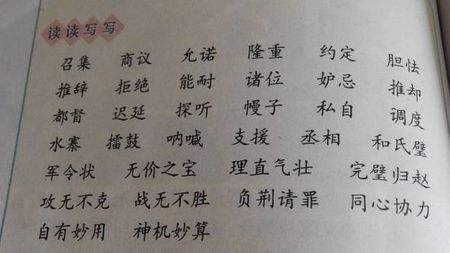 读读写写
召集 商议 允诺 隆重 约定 胆怯
推辞 拒绝 能耐 诸位 妒忌 推却
都督 迟延 探听 幔子 私自 调度
水寨 擂鼓 呐喊 支援 丞相 和氏璧
军令状 无价之宝 理直气壮 完璧归赵
攻无不克 战无不胜 负荆请罪 同心协力
自有妙用 神机妙算